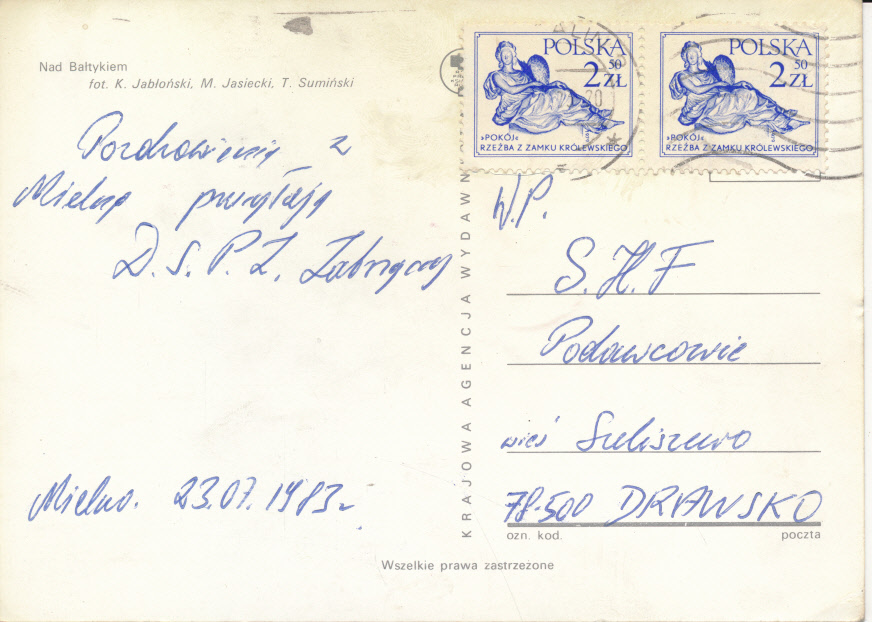 Nad Bałtykiem
fot. K. Jabłoński, M. Jasiecki, T. Sumiński
Pozdrowienia z
Mielna przesyłają
D. S. P. Z.
Mielno. 23.07.1983r
KRAJOWA AGENCJA WYDAWN
POLSKA
2 50 ZŁ
»POKÓJ«
RZEŹBA Z ZAMKU KRÓLEWSKIEGO
POLSKA
2 50 ZŁ
»POKÓJ«
RZEŹBA Z ZAMKU KRÓLEWSKIEGO
W.P.
S.H.F
Podawcowie
wieś Suliszewo
78-500 DRAWSKO
ozn. kod. poczta
Wszelkie prawa zastrzeżone